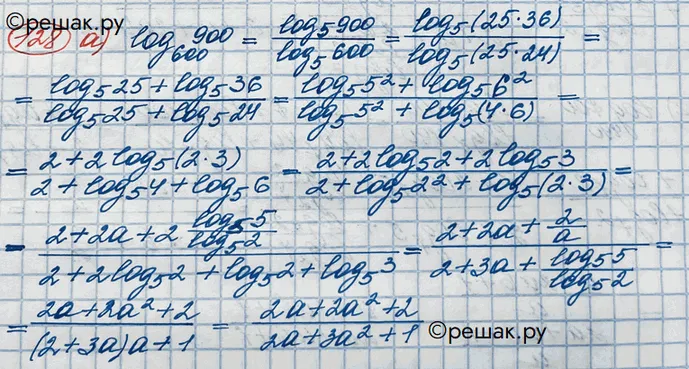 ©решак.ру
128 а) log₆₀₀ 900 = log₅900 / log₅600 = log₅(25·36) / log₅(25·24) =
= (log₅25 + log₅36) / (log₅25 + log₅24) = (log₅5² + log₅6²) / (log₅5² + log₅(4·6)) =
= (2 + 2log₅(2·3)) / (2 + log₅4 + log₅6) = (2 + 2log₅2 + 2log₅3) / (2 + log₅2² + log₅(2·3)) =
= (2 + 2a + 2 log₅5/log₅2) / (2 + 2log₅2 + log₅2 + log₅3) = (2 + 2a + 2/a) / (2 + 3a + log₅5/log₅2) =
= (2a + 2a² + 2) / ((2 + 3a)a + 1) = (2a + 2a² + 2) / (2a + 3a² + 1)
©решак.ру